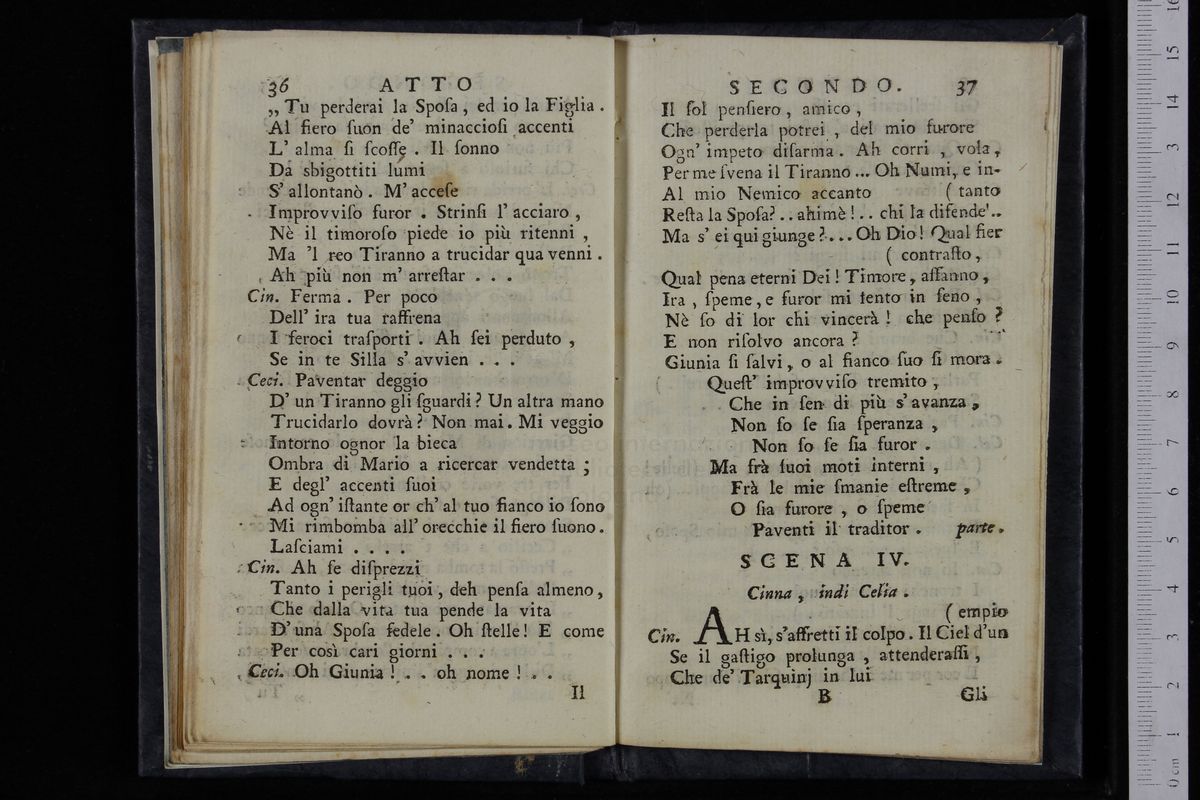 36 ATTO
„ Tu perderai la Spoſa, ed io la Figlia.
Al fiero ſuon de' minaccioſi accenti
L' alma ſi ſcoſſe. Il ſonno
Da sbigottiti lumi
S' allontanò. M' acceſe
Improvviſo furor. Strinſi l' acciaro,
Nè il timoroſo piede io più ritenni,
Ma 'l reo Tiranno a trucidar qua venni.
Ah più non m' arreſtar . . .
Cin. Ferma. Per poco
Dell' ira tua raffrena
I feroci traſporti. Ah ſei perduto,
Se in te Silla s' avvien . . .
Ceci. Paventar deggio
D' un Tiranno gli ſguardi? Un altra mano
Trucidarlo dovrà? Non mai. Mi veggio
Intorno ognor la bieca
Ombra di Mario a ricercar vendetta;
E degl' accenti ſuoi
Ad ogn' iſtante or ch' al tuo fianco io ſono
Mi rimbomba all' orecchie il fiero ſuono.
Laſciami . . . .
Cin. Ah ſe diſprezzi
Tanto i perigli tuoi, deh penſa almeno,
Che dalla vita tua pende la vita
D' una Spoſa fedele. Oh ſtelle! E come
Per così cari giorni . . .
Ceci. Oh Giunia! . . oh nome! . .
Il
SECONDO. 37
Il ſol penſiero, amico,
Che perderla potrei, del mio furore
Ogn' impeto diſarma. Ah corri, vola,
Per me ſvena il Tiranno ... Oh Numi, e in-
Al mio Nemico accanto ( tanto
Reſta la Spoſa? .. ahimè! .. chi la difende'..
Ma s' ei qui giunge?... Oh Dio! Qual fier
( contraſto,
Qual pena eterni Dei! Timore, affanno,
Ira, ſpeme, e furor mi ſento in ſeno,
Nè ſo di lor chi vincerà! che penſo?
E non riſolvo ancora?
Giunia ſi ſalvi, o al fianco ſuo ſi mora.
Queſt' improvviſo tremito,
Che in ſen di più s' avanza,
Non ſo ſe ſia ſperanza,
Non ſo ſe ſia furor.
Ma frà ſuoi moti interni,
Frà le mie ſmanie eſtreme,
O ſia furore, o ſpeme
Paventi il traditor. parte.
SCENA IV.
Cinna, indi Celia.
( empio
Cin. AH sì, s'affretti il colpo. Il Ciel d'un
Se il gaſtigo prolunga, attenderaſſi,
Che de' Tarquinj in lui
B Gli
0 cm 1 2 3 4 5 6 7 8 9 10 11 12 13 14 15 16